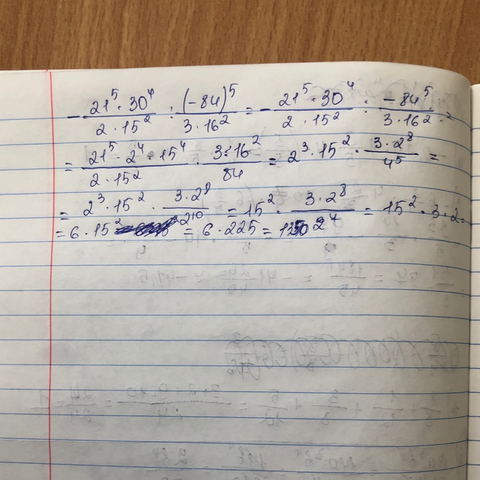 - 21⁵·30⁴/2·15² : (-84)⁵/3·16² = - 21⁵·30⁴/2·15² : -84⁵/3·16² =
= 21⁵·2⁴·15⁴/2·15² · 3·16²/84 = 2³·15² · 3·2⁸/4⁵ =
= 2³·15² · 3·2⁸/2¹⁰ = 15² · 3·2⁸/2⁴ = 15²·3·2=
= 6·15² = 6·225 = 1350